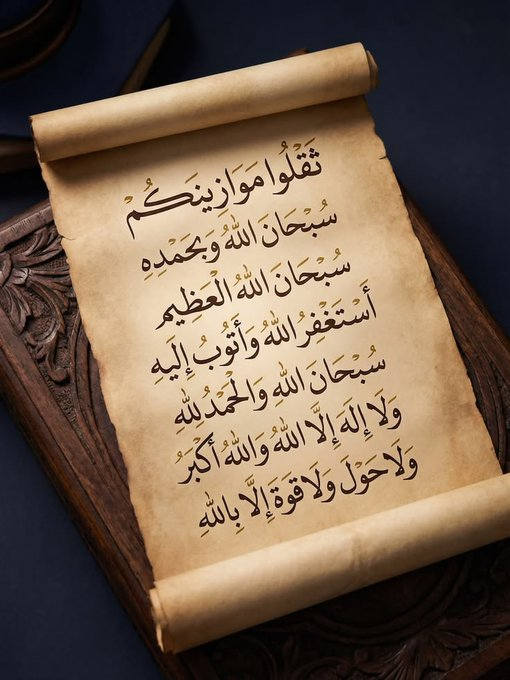 ثَقِّلُوا مَوَازِينَكُمْ
سُبْحَانَ اللهُ وَبِحَمْدِهِ
سُبْحَانَ اللهُ الْعَظِيم
أَسْتَغْفِرُ اللهُ وَأَتُوبُ إِلَيهِ
سُبْحَانَ اللهِ وَالْحَمْدُ لِلهِ
وَلَا إِلَهَ إِلَّا اللهُ وَاللهُ أَكْبَرُ
وَلَا حَوْلَ وَلَا قوَةَ إِلَّا بِاللهِ